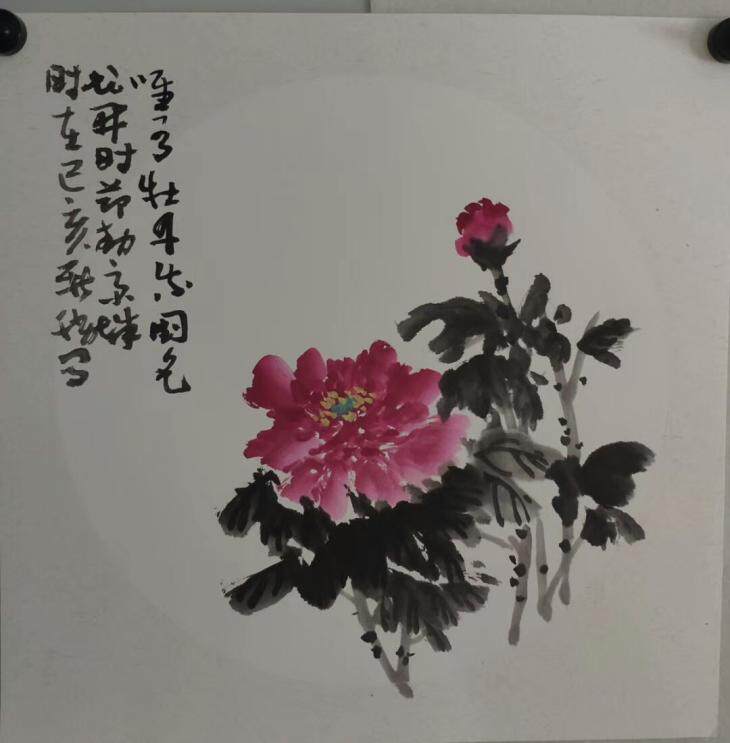 唯有牡丹真国色
花开时节动京城
时在己亥写